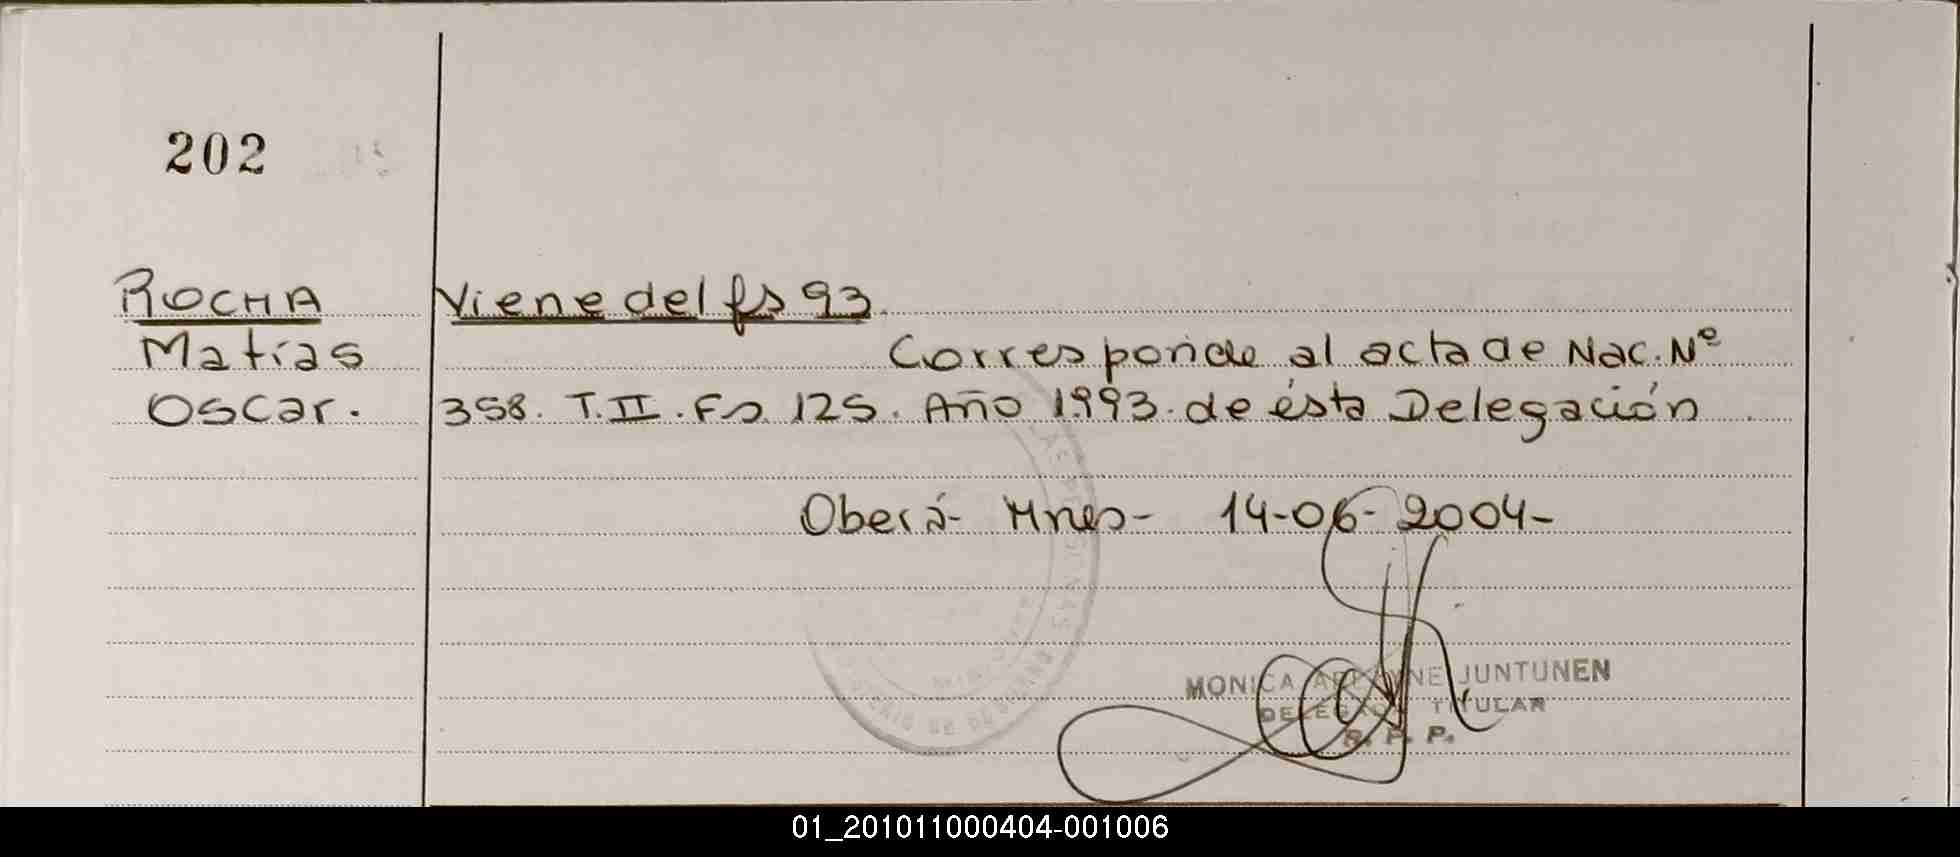 202
ROCHA Viene del fs 93.
Matías Corresponde al acta de Nac. Nº
Oscar. 358. T. II. Fs. 125. Año 1993. de ésta Delegación.
Oberá- Mnes- 14-06-2004-
MONICA JUNTUNEN
TITULAR
R. P. P.
01_201011000404-001006